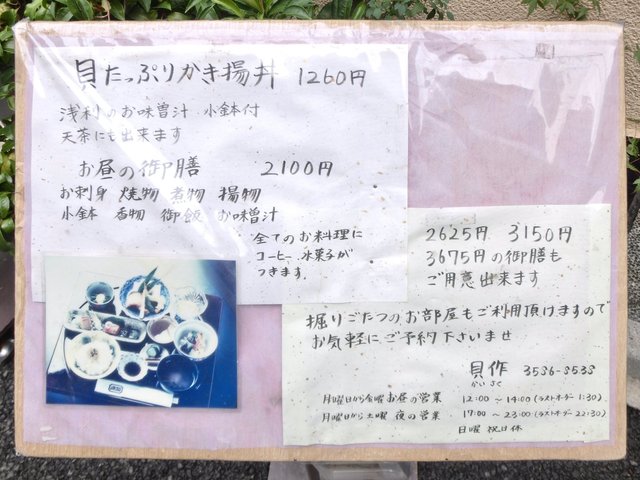 貝たっぷりかき揚丼 1260円
浅利のお味曽汁 小鉢付
天茶にも出来ます
お昼の御膳 2100円
お刺身 焼物 煮物 揚物
小鉢 香物 御飯 お味曽汁
全てのお料理に
コーヒー 水菓子が
つきます.
2625円 3150円
3675円の御膳も
ご用意出来ます
掘りごたつのお部屋もご利用頂けますので
お気軽にご予約下さいませ
貝作 3536-3538
かいさく
月曜日から金曜 お昼の営業 12:00~14:00(ラストオーダー1:30)
月曜日から土曜 夜の営業 17:00~23:00(ラストオーダー22:30)
日曜 祝日休